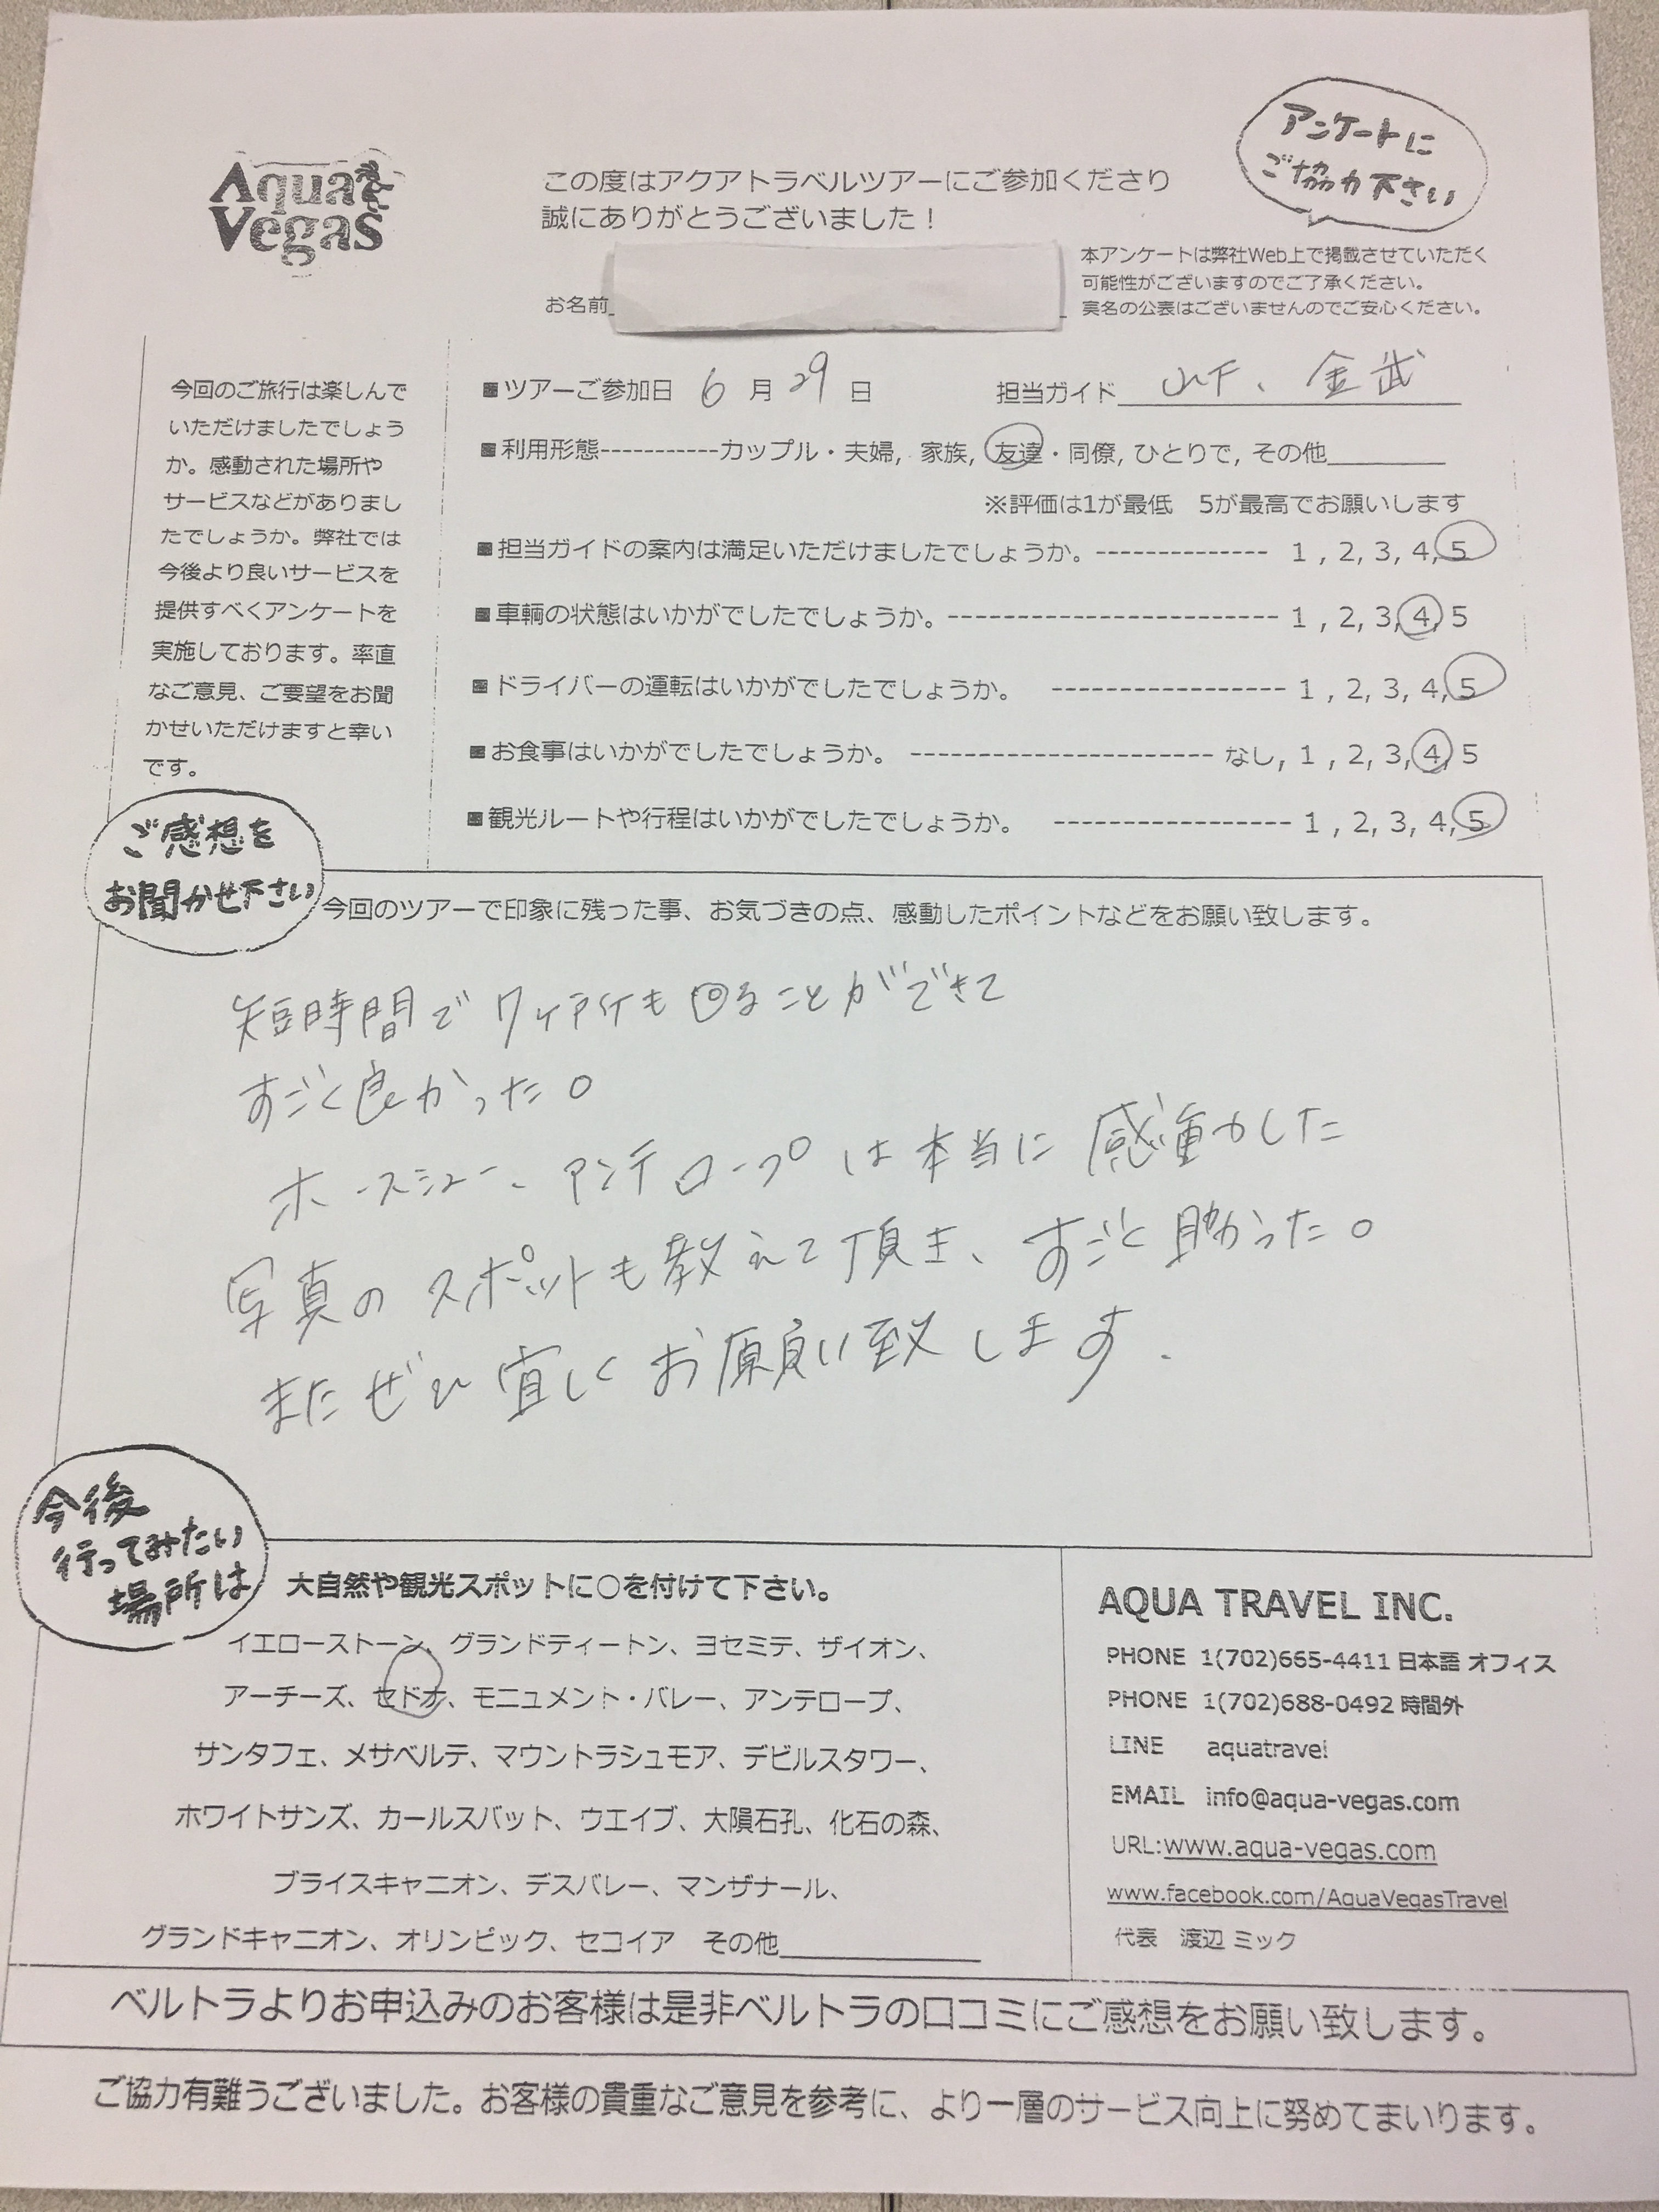 Aqua
Vegas
この度はアクアトラベルツアーにご参加くださり
誠にありがとうございました！
アンケートに
ご協力下さい
本アンケートは弊社Web上で掲載させていただく
可能性がございますのでご了承ください。
実名の公表はございませんのでご安心ください。
お名前
今回のご旅行は楽しんで
いただけましたでしょう
か。感動された場所や
サービスなどがありまし
たでしょうか。弊社では
今後より良いサービスを
提供すべくアンケートを
実施しております。率直
なご意見、ご要望をお聞
かせいただけますと幸い
です。
■ツアーご参加日 6 月 29 日 担当ガイド 山下、金武
■利用形態-----------カップル・夫婦, 家族, 友達・同僚, ひとりで, その他
※評価は1が最低 5が最高でお願いします
■担当ガイドの案内は満足いただけましたでしょうか。------------- 1 , 2, 3, 4, 5
■車輌の状態はいかがでしたでしょうか。------------------------- 1 , 2, 3, 4, 5
■ドライバーの運転はいかがでしたでしょうか。 ----------------- 1 , 2, 3, 4, 5
■お食事はいかがでしたでしょうか。 ----------------------- なし, 1 , 2, 3, 4, 5
■観光ルートや行程はいかがでしたでしょうか。 ------------------ 1 , 2, 3, 4, 5
ご感想を
お聞かせ下さい
今回のツアーで印象に残った事、お気づきの点、感動したポイントなどをお願い致します。
短時間で 7ヶ所も回ることができて
すごく良かった。
ホースシュー、アンテロープは本当に感動した
写真のスポットも教えて頂き、すごく助かった。
またぜひ宜しくお願い致します.
今後
行ってみたい
場所は
大自然や観光スポットに○を付けて下さい。
イエローストーン、グランドティートン、ヨセミテ、ザイオン、
アーチーズ、セドナ、モニュメント・バレー、アンテロープ、
サンタフェ、メサベルテ、マウントラシュモア、デビルスタワー、
ホワイトサンズ、カールスバット、ウエイブ、大隕石孔、化石の森、
ブライスキャニオン、デスバレー、マンザナール、
グランドキャニオン、オリンピック、セコイア その他
AQUA TRAVEL INC.
PHONE 1(702)665-4411 日本語 オフィス
PHONE 1(702)688-0492 時間外
LINE aquatravel
EMAIL info@aqua-vegas.com
URL:www.aqua-vegas.com
www.facebook.com/AquaVegasTravel
代表 渡辺 ミック
ベルトラよりお申込みのお客様は是非ベルトラの口コミにご感想をお願い致します。
ご協力有難うございました。お客様の貴重なご意見を参考に、より一層のサービス向上に努めてまいります。